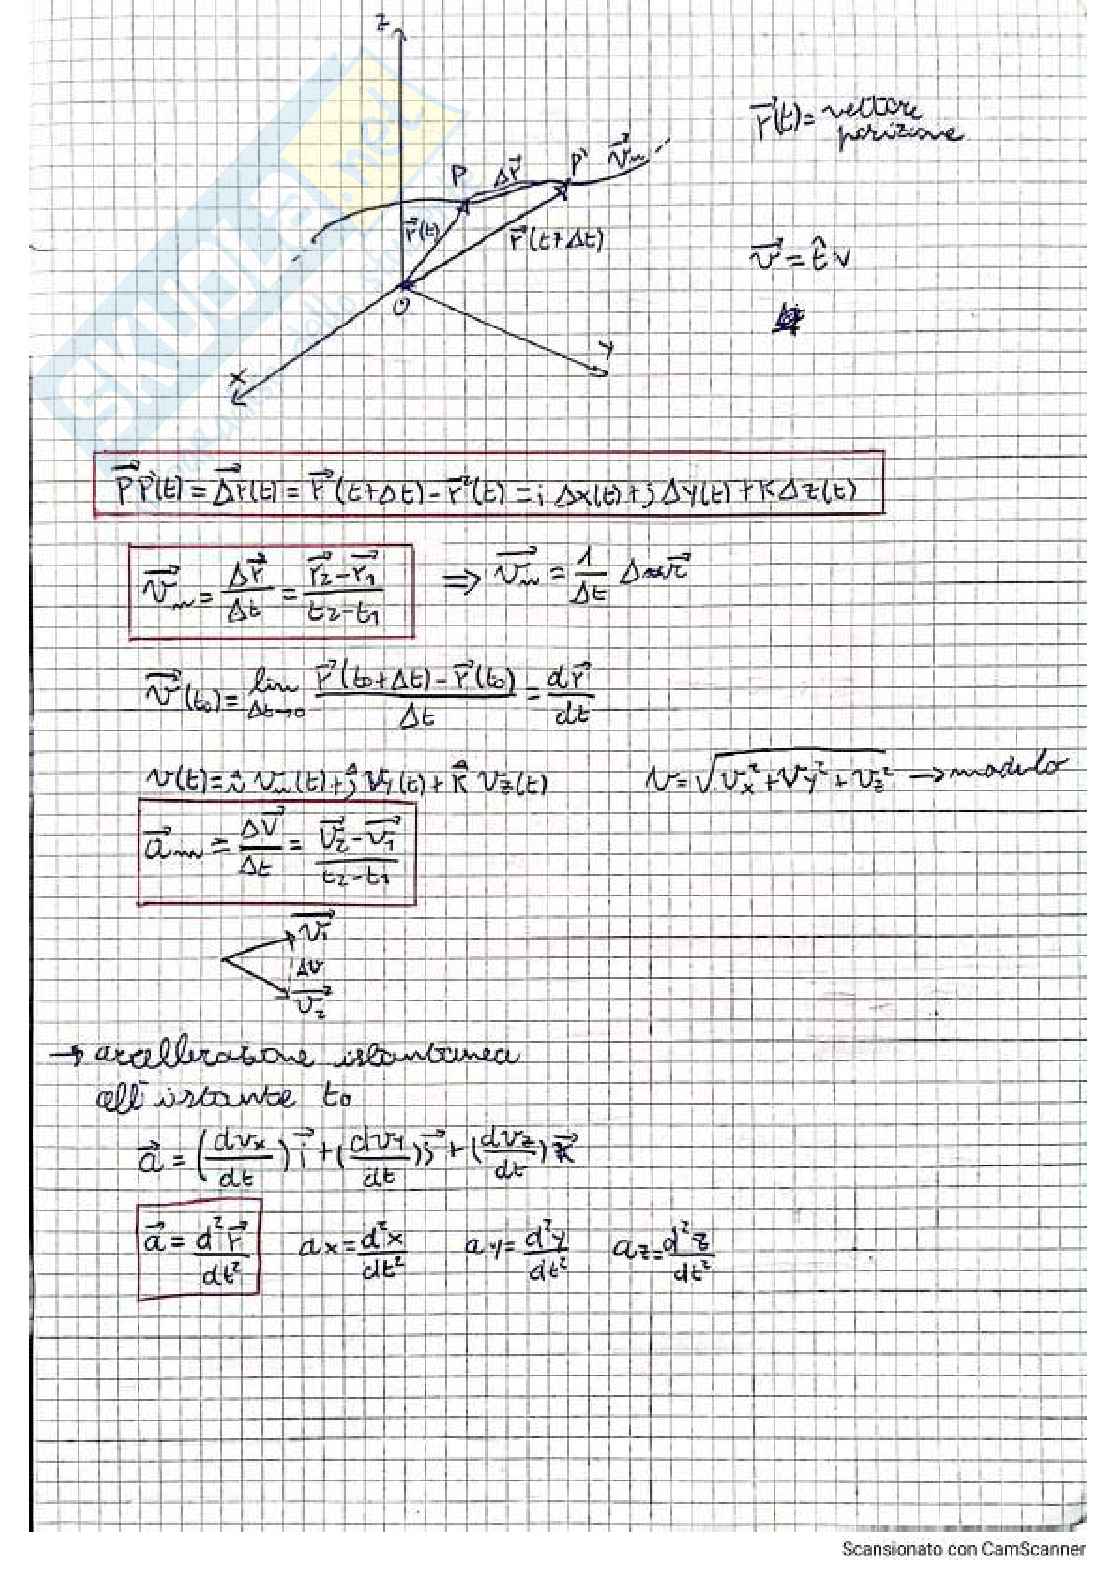 Z
r⃗(t) = vettore
posizione
P Δr⃗ P' v⃗m
r⃗(t) r⃗(t+Δt)
v⃗ = t̂ v
O
X Y
SKUOLA.net
PP⃗'(t) = Δr⃗(t) = r⃗(t+Δt) - r⃗(t) = i Δx(t) + j Δy(t) + k Δz(t)
v⃗m = Δr⃗/Δt = (r⃗2 - r⃗1)/(t2 - t1) ⇒ v⃗m = 1/Δt Δ r⃗
v⃗(t0) = lim Δt→0 (r⃗(t0+Δt) - r⃗(t0))/Δt = dr⃗/dt
v(t) = î vx(t) + ĵ vy(t) + k̂ vz(t) v = √(vx² + vy² + vz²) → modulo
a⃗m = ΔV⃗/Δt = (v⃗2 - v⃗1)/(t2 - t1)
v⃗1
Δv
v⃗2
→ accellerazione istantanea
all'istante t0
a⃗ = (dvx/dt) i⃗ + (dvy/dt) j⃗ + (dvz/dt) k⃗
a⃗ = d²r⃗/dt² ax = d²x/dt² ay = d²y/dt² az = d²z/dt²
Scansionato con CamScanner